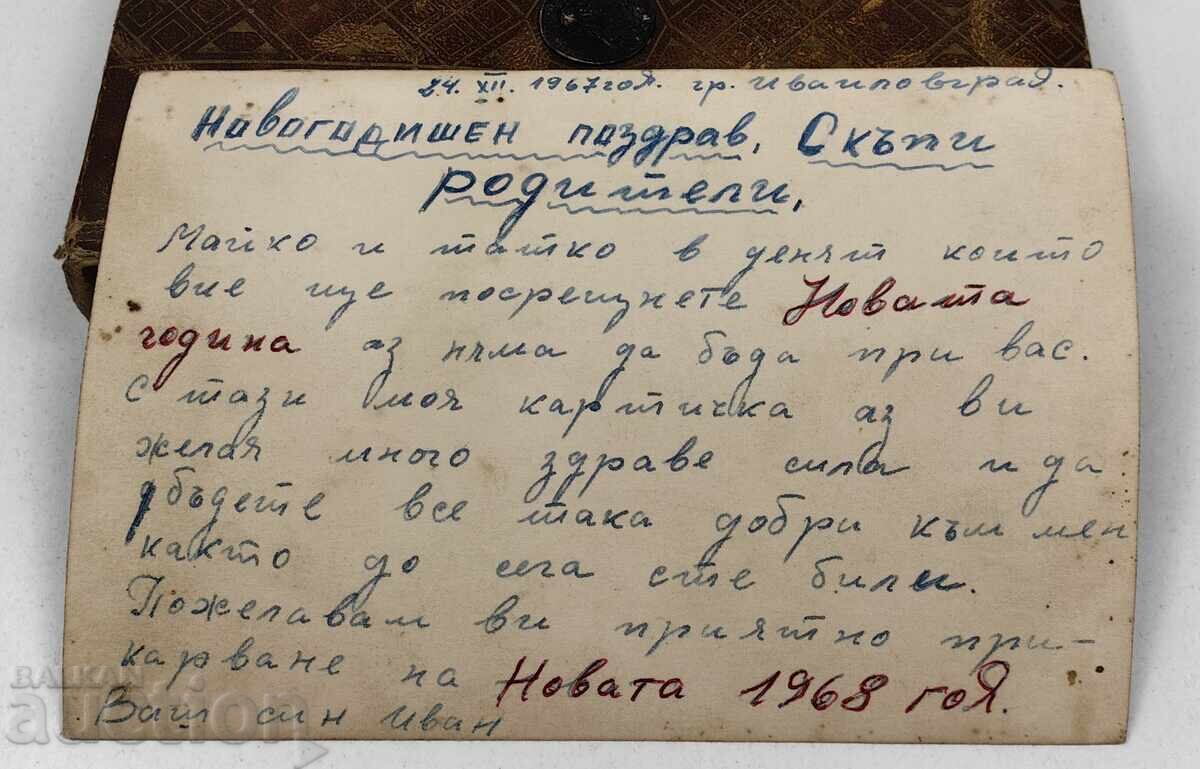 24. XII. 1967 год. гр. Ивайловград.
Новогодишен поздрав, Скъпи
родители,
Майко и татко в денят който
вие ще посрещнете Новата
година аз няма да бъда при вас.
С тази моя картичка аз ви
желая много здраве сила и да
бъдете все така добри към мен
както до сега сте били.
Пожелавам ви приятно при-
карване на Новата 1968 год.
Ваш син Иван
BALKAN
auction